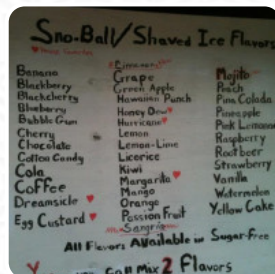 Sno-Ball/Shaved Ice Flavors
Cinnamon
Banana
Blackberry
Blackcherry
Blueberry
Bubble Gum
Cherry
Chocolate
Cotton Candy
Cola
Coffee
Dreamsicle
Egg Custard
Grape
Green Apple
Hawaiian Punch
Honey Dew
Hurricane
Lemon
Lemon-Lime
Licorice
Kiwi
Margarita
Mango
Orange
Passion Fruit
Sangria
Mojito
Peach
Pina Colada
Pineapple
Pink Lemonade
Raspberry
Root beer
Strawberry
Vanilla
Watermelon
Yellow Cake
All Flavors Available in Sugar-Free
Can Mix 2 Flavors